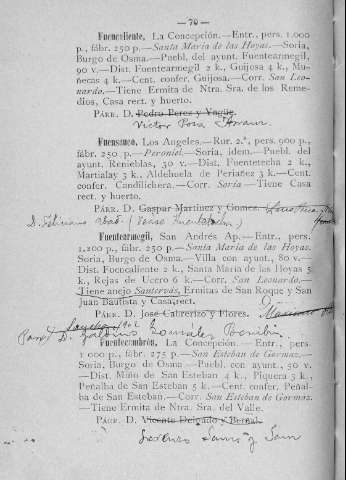 — 70 —
Fuencaliente, La Concepción.—Entr., pers. 1.000
p., fábr. 250 p.—Santa María de las Hoyas.—Soria,
Burgo de Osma.—Puebl. del ayunt. Fuentearmegil,
90 v.—Dist. Fuentearmegil 2 k., Guijosa 4 k., Mu-
ñecas 4 k.—Cent. confer. Guijosa.—Corr. San Leo-
nardo.—Tiene Ermita de Ntra. Sra. de los Reme-
dios, Casa rect. y huerto.
Párr. D. Pedro Perez y Yagüe.
Victor
Fuensauco, Los Angeles.—Rur. 2.ª, pers. 900 p.,
fábr. 250 p.—Peroniel.—Soria, idem.—Puebl. del
ayunt. Renieblas, 30 v.—Dist. Fuentetecha 2 k.,
Martialay 3 k., Aldehuela de Periañez 3 k.—Cent.
confer. Candilichera.—Corr. Soria—Tiene Casa
rect. y huerto.
Párr. D. Gaspar Martínez y Gomez.
D. Feliciano Abad
Fuentearmegil, San Andrés Ap.—Entr., pers.
1.200 p., fábr. 250 p.—Santa María de las Hoyas.
Soria, Burgo de Osma.—Villa con ayunt., 80 v.—
Dist. Fuencaliente 2 k., Santa María de las Hoyas 5
k., Rejas de Ucero 6 k.—Corr. San Leonardo.—
Tiene anejo Santervás, Ermitas de San Roque y San
Juan Bautista y Casa rect.
Párr. D. José Cabrerizo y Flores.
D. González
Fuentecambrón, La Concepción.—Entr., pers.
1 000 p., fábr. 275 p.—San Esteban de Gormaz.—
Soria, Burgo de Osma—Puebl. con ayunt., 50 v.—
Dist. Miño de San Esteban 4 k., Piquera 3 k.,
Peñalba de San Esteban 5 k.—Cent. confer. Peñal-
ba de San Esteban.—Corr. San Esteban de Gormaz.
—Tiene Ermita de Ntra. Sra. del Valle.
Párr. D. Vicente Delgado y Bernal.